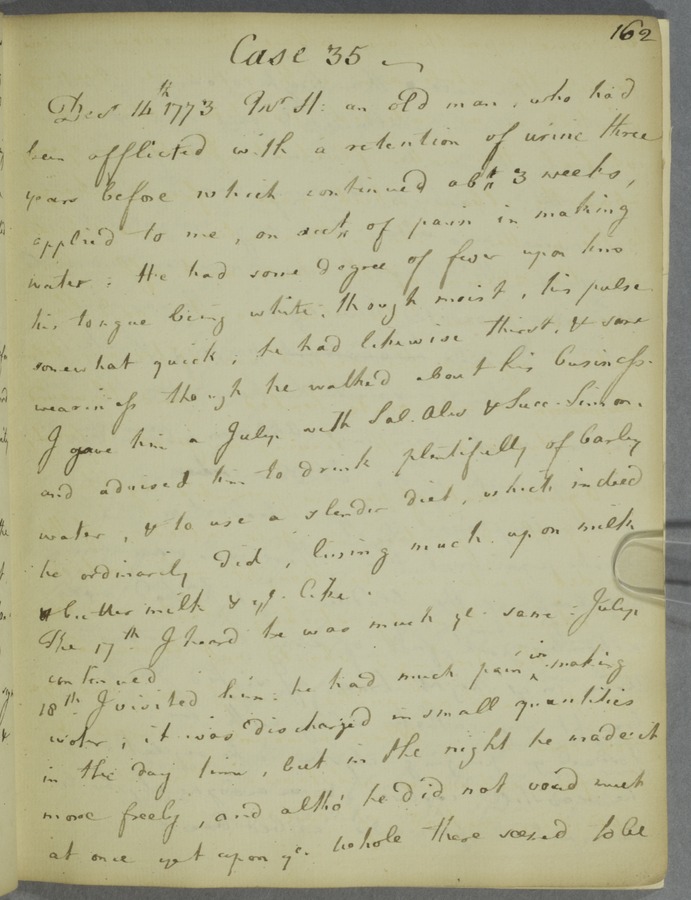 162
Case 35
Decr 14th 1773 Mr St: an old man, who had
been afflicted with a retention of urine three
years before which continued abt 3 weeks,
applied to me, on acct of pain in making
water; He had some degree of fever upon him
his tongue being white, though moist, his pulse
somewhat quick, he had likewise thirst, & some
weariness though he walked about his business.
I gave him a Julep with Sal. Abs & Succ. Limon.
and advised him to drink plentifully of barley
water, & to use a slender diet, which indeed
he ordinarily did, living much upon milk
& butter milk & ye like.
The 17th I heard he was much ye same: Julep
continued
18th I visited him: he had much pain in making
water, it was discharged in small quantities
in the day time, but in the night he made it
more freely, and altho' he did not void much
at once yet upon ye whole there seemed to be